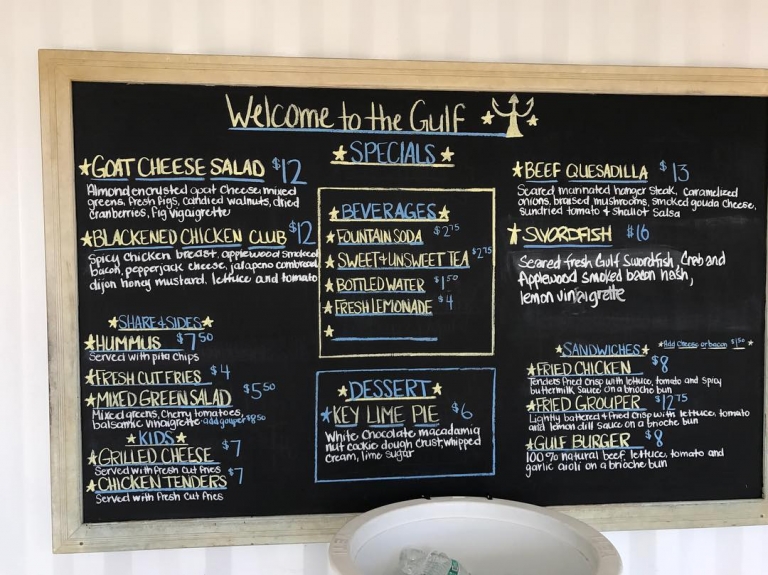 Welcome to the Gulf
SPECIALS
GOAT CHEESE SALAD $12
Almond encrusted goat cheese, mixed
greens, fresh figs, candied walnuts, dried
cranberries, fig vigaigrette
BLACKENED CHICKEN CLUB $12
Spicy chicken breast, applewood smoked
bacon, pepperjack cheese, jalapeno cornbread
dijon honey mustard, lettuce and tomato
SHARE & SIDES
HUMMUS $7.50
Served with pita chips
FRESH CUT FRIES $4
MIXED GREEN SALAD $5.50
Mixed greens, cherry tomatoes,
balsamic vinaigrette-add grouper $8.50
KIDS
GRILLED CHEESE $7
Served with fresh cut fries
CHICKEN TENDERS $7
Served with fresh cut fries
BEVERAGES
FOUNTAIN SODA $2.75
SWEET & UNSWEET TEA $2.75
BOTTLED WATER $1.50
FRESH LEMONADE $4
DESSERT
KEY LIME PIE $6
White chocolate macadamia
nut cookie dough crust, whipped
cream, lime sugar
BEEF QUESADILLA $13
Seared marinated hanger steak, caramelized
onions, braised mushrooms, smoked gouda cheese,
sundried tomato & shallot salsa
SWORDFISH $16
Seared fresh Gulf Swordfish, Crab and
Applewood smoked bacon hash,
lemon vinaigrette
SANDWICHES *Add Cheese or bacon $1.50*
FRIED CHICKEN $8
Tenders fried crisp with lettuce, tomato and spicy
buttermilk sauce on a brioche bun
FRIED GROUPER $12.75
Lightly battered & fried crisp with lettuce, tomato
and lemon dill sauce on a brioche bun
GULF BURGER $8
100% natural beef, lettuce, tomato and
garlic aioli on a brioche bun